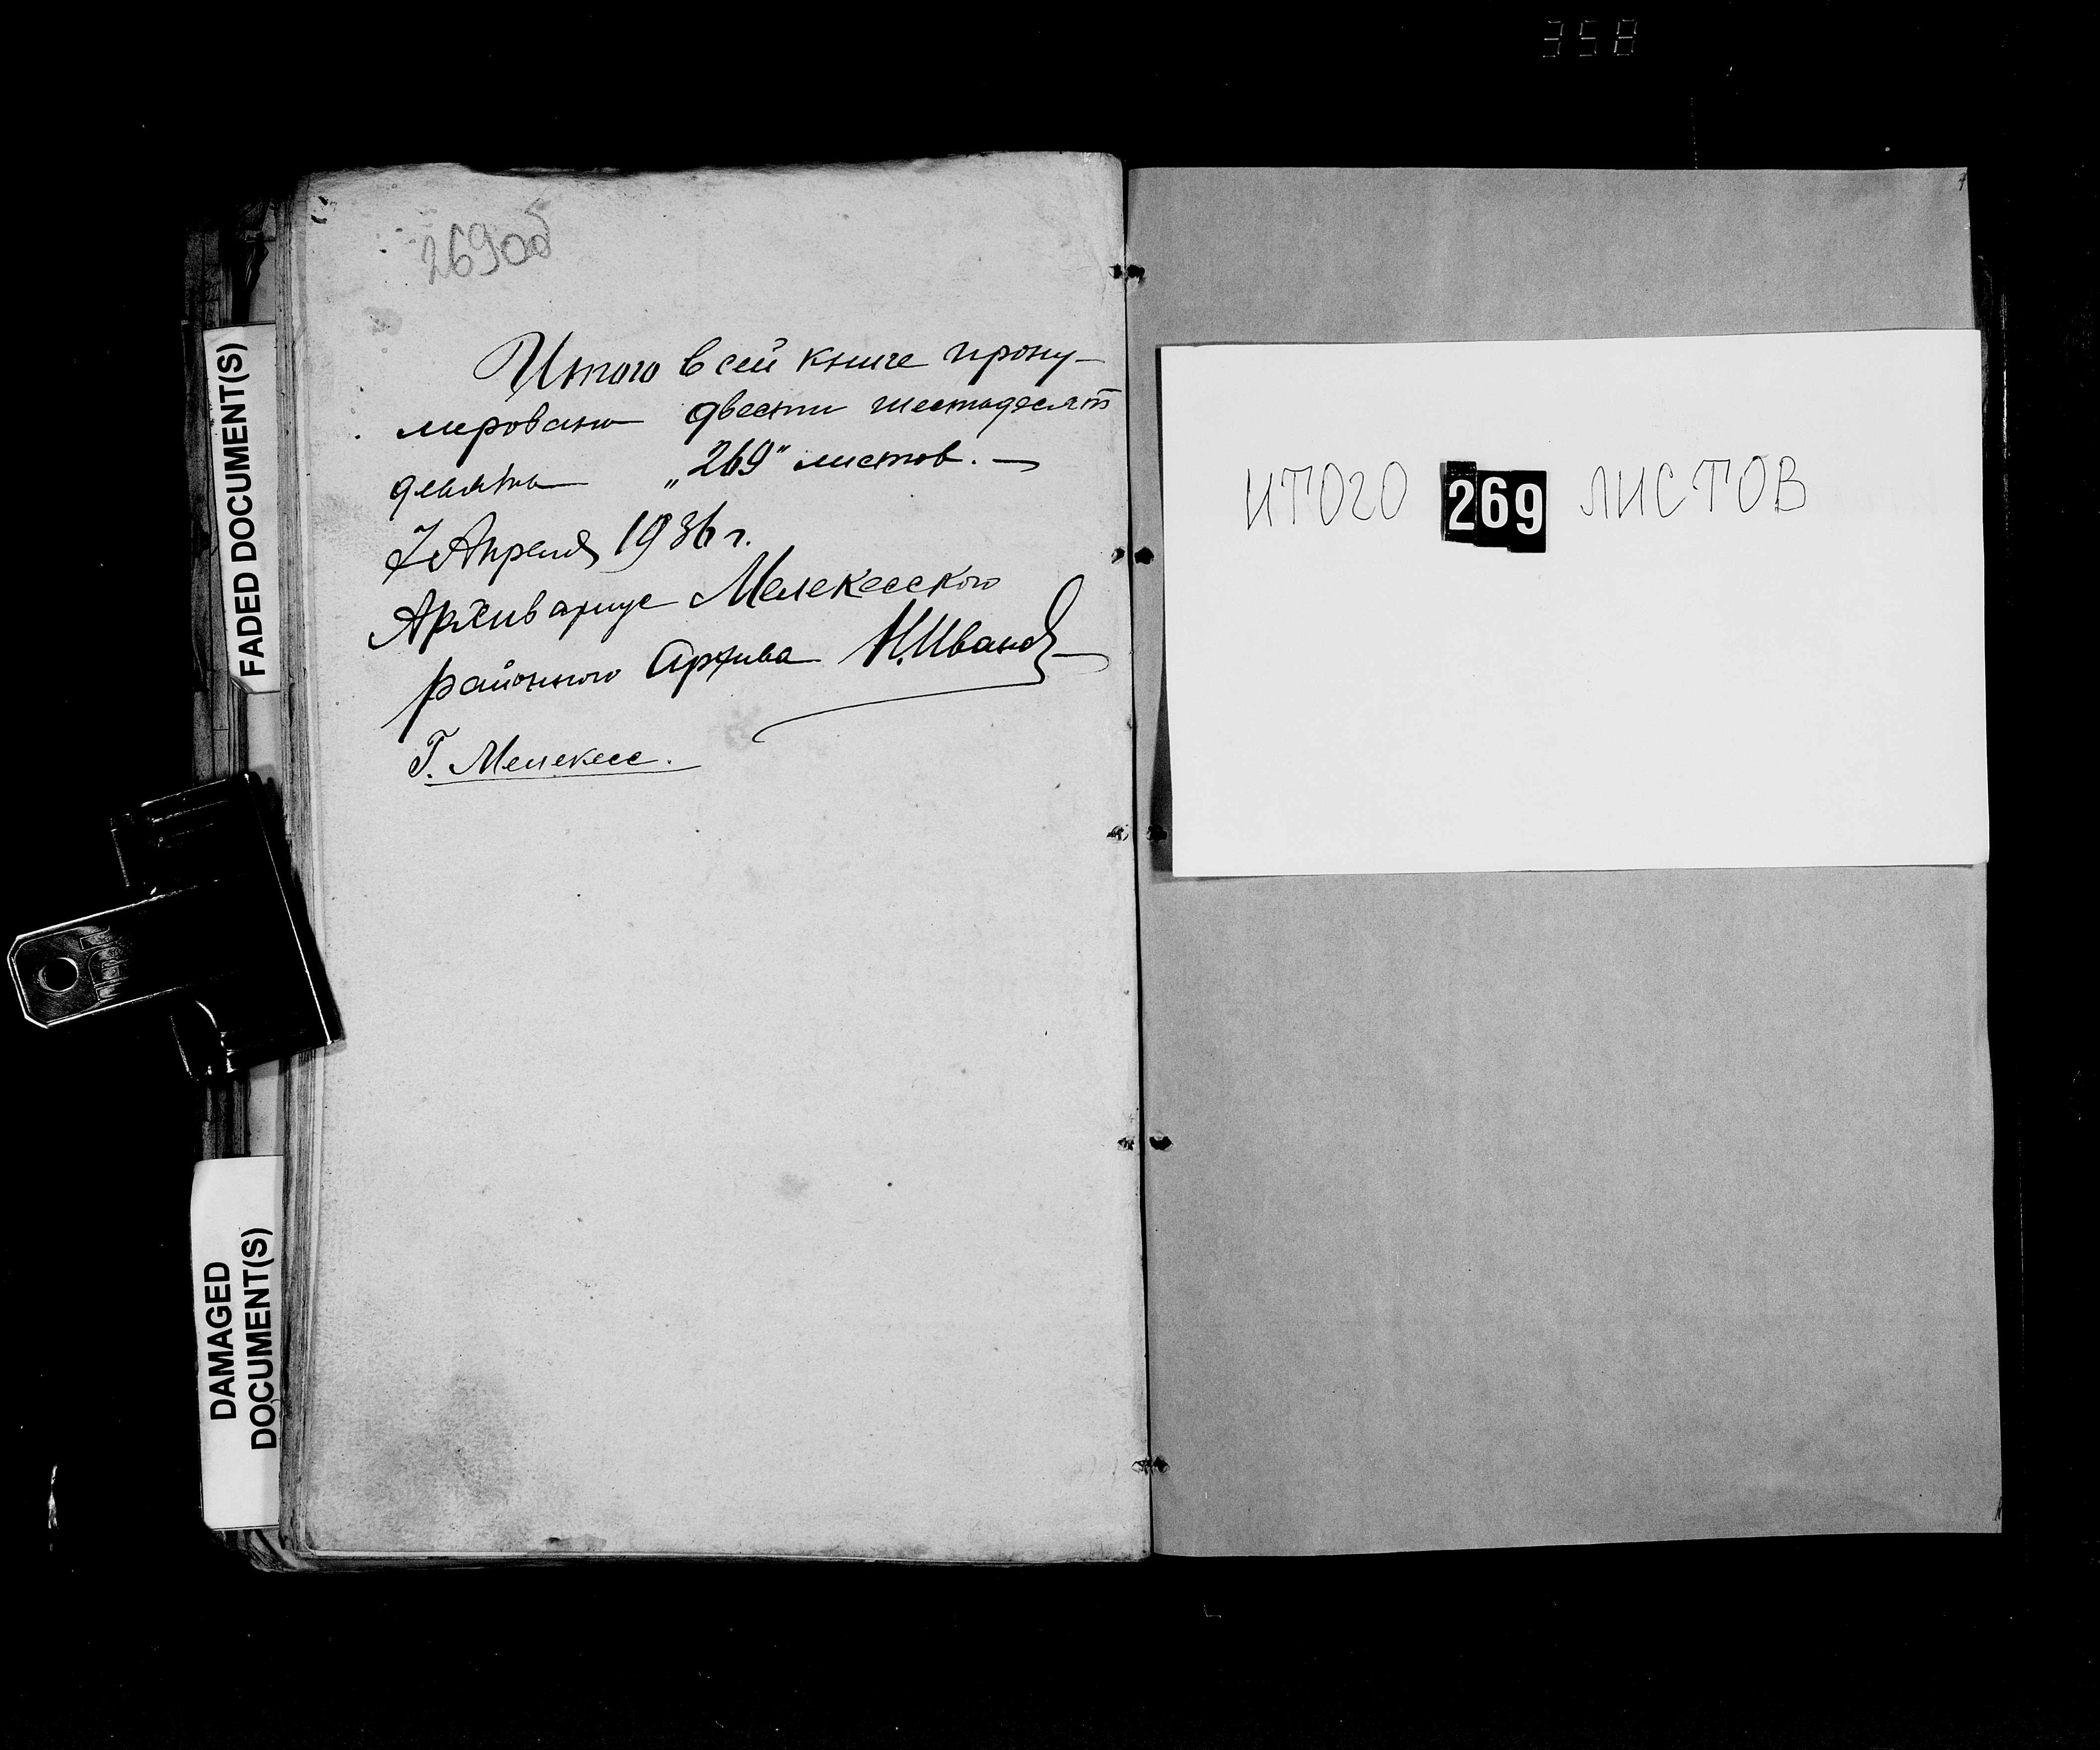 358
269об
Итого в сей книге прону-
мировано двести шестьдесят
девять „269" листов. —
7 Апреля 1936 г.
Архивариус Мелекесского
районного Архива Н. Иванов
Г. Мелекесс.
ИТОГО 269 ЛИСТОВ
FADED DOCUMENT(S)
DAMAGED
DOCUMENT(S)